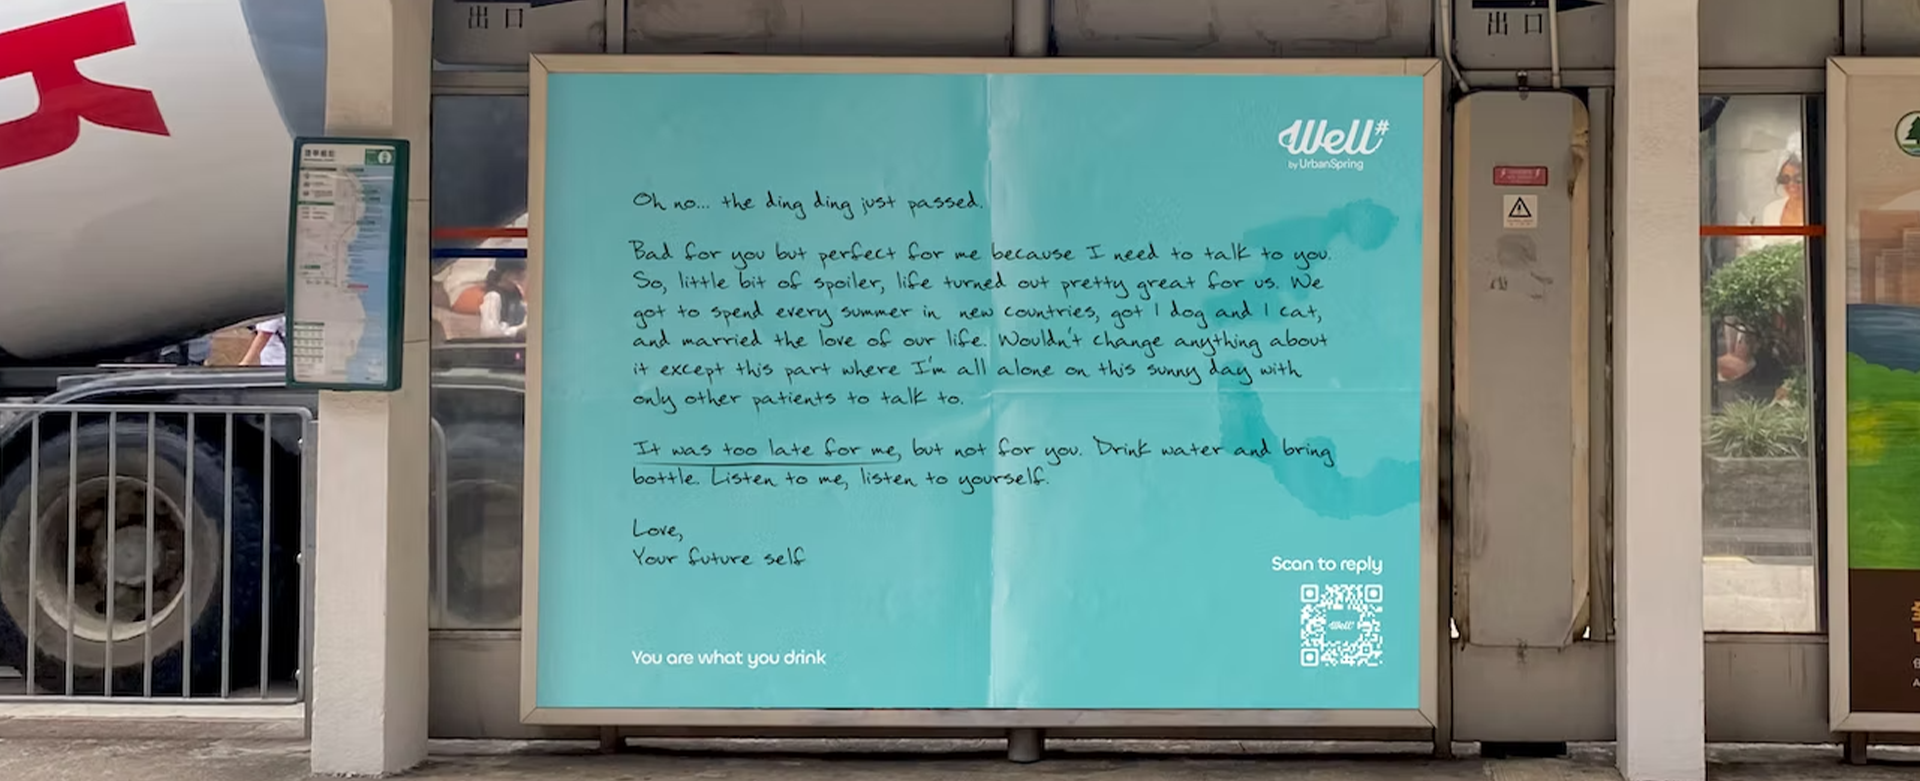 出口
出口
R
Well#
by UrbanSpring
Oh no... the ding ding just passed.
Bad for you but perfect for me because I need to talk to you.
So, little bit of spoiler, life turned out pretty great for us. We
got to spend every summer in new countries, got 1 dog and 1 cat,
and married the love of our life. Wouldn't change anything about
it except this part where I'm all alone on this sunny day with
only other patients to talk to.
It was too late for me, but not for you. Drink water and bring
bottle. Listen to me, listen to yourself.
Love,
Your future self
Scan to reply
Well#
You are what you drink